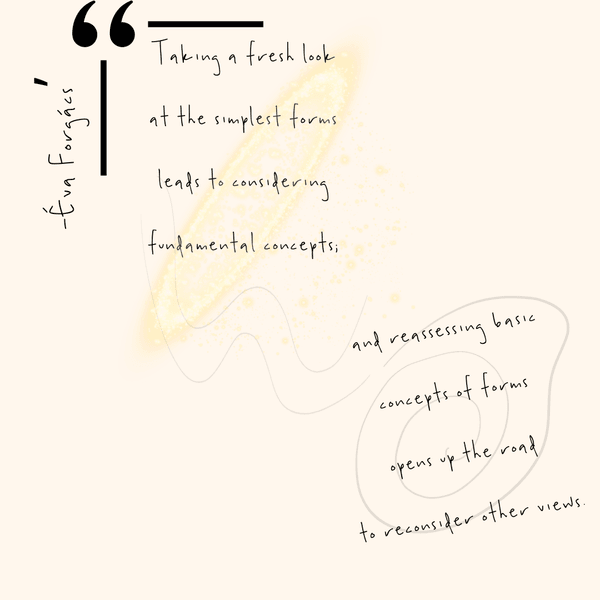 “
Taking a fresh look
at the simplest forms
leads to considering
fundamental concepts;
and reassessing basic
concepts of forms
opens up the road
to reconsider other views.
-Éva Forgács'